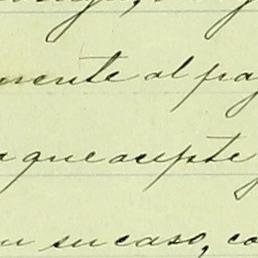 mente al pag
que acepte
en su caso, co